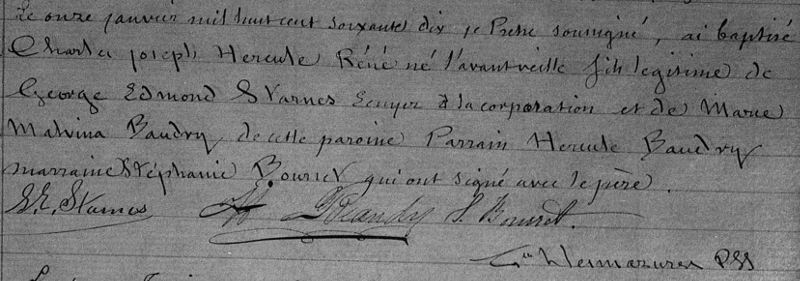 Le onze janvier mil huit cent soixante dix je Prêtre soussigné, ai baptisé
Charles Joseph Hercule Réné né l'avant veille fils légitime de
George Edmond Starnes Ecuyer à la corporation et de Marie
Malvina Baudry de cette paroisse Parrain Hercule Baudry
marraine Stéphanie Bourret qui ont signé avec le père.
G. E. Starnes H Beaudry S. Bourret.
Desmazures PSS